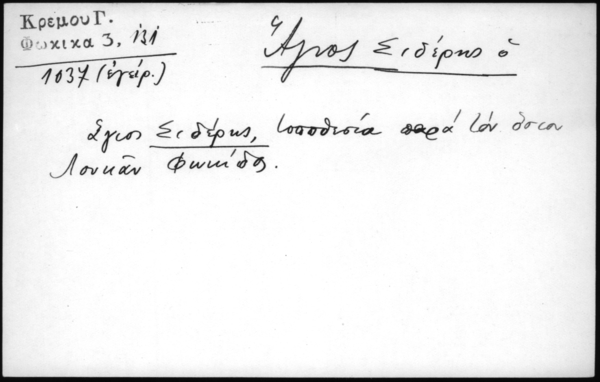 Κρεμου Γ.
Φωκικα 3, 131
1037 (ἐγείρ.)
Ἅγιος Σιδέρης ὁ
Ἅγιος Σιδέρης, τοποθεσία παρά τόν ὅσιον
Λουκᾶν Φωκίδος.